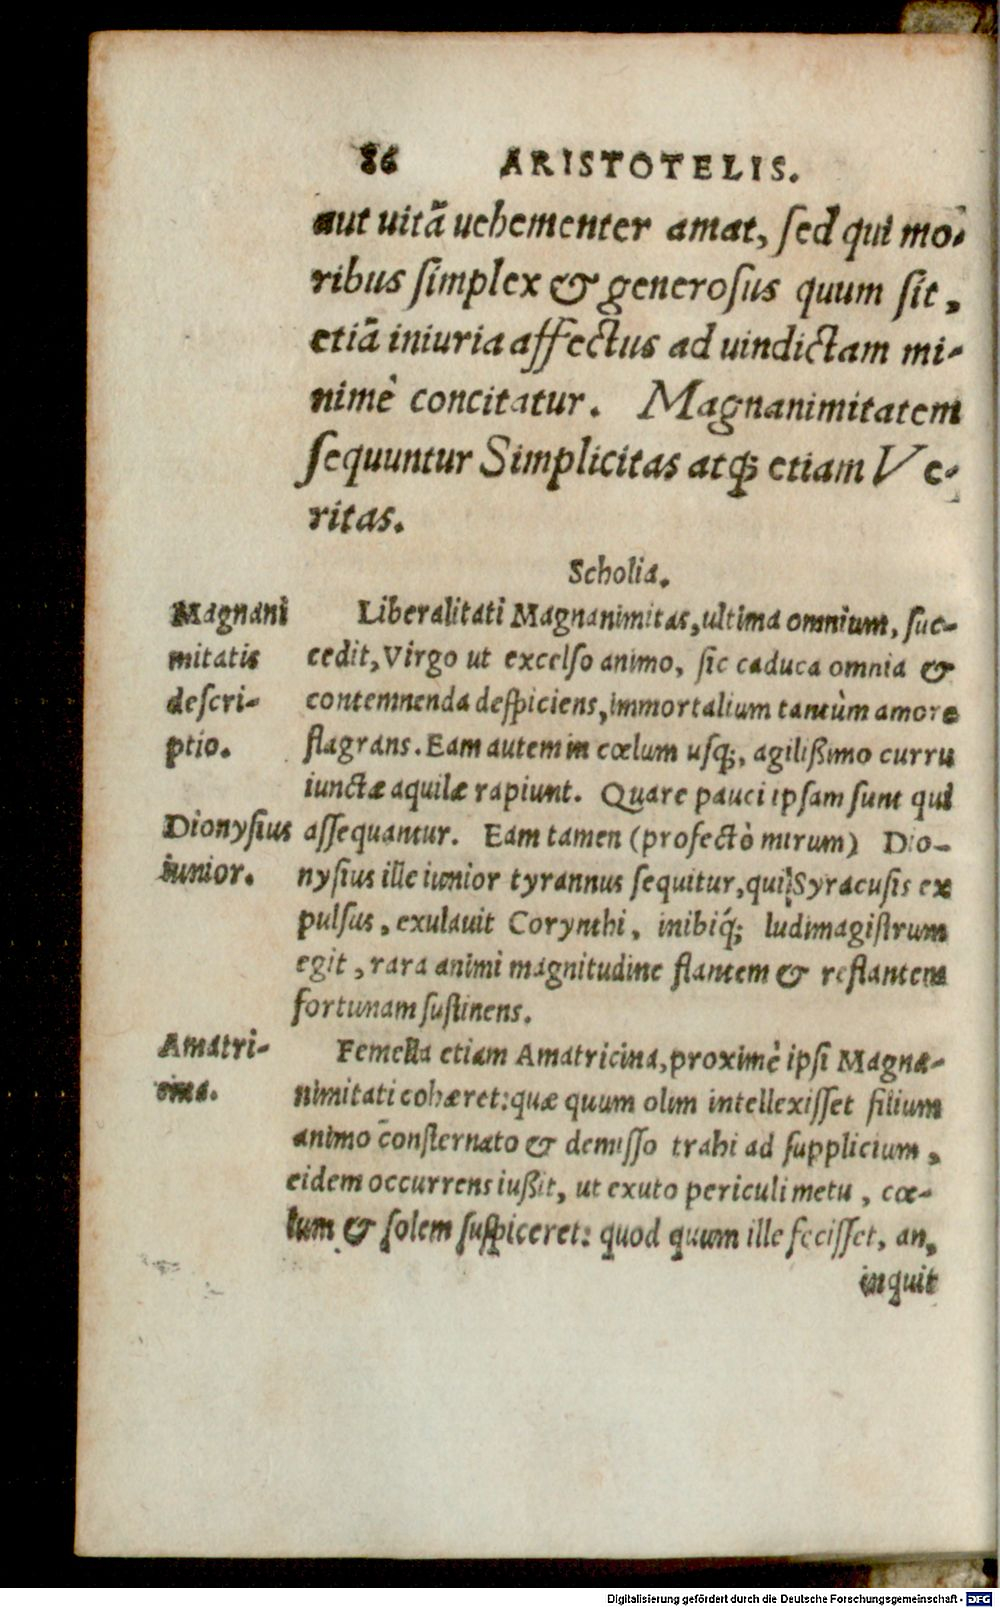 86 ARISTOTELIS.
aut uitã uehementer amat, ſed qui mo-
ribus ſimplex & generoſus quum ſit,
etiã iniuria affectus ad uindictam mi-
nimè concitatur. Magnanimitatem
ſequuntur Simplicitas atq; etiam Ve-
ritas.
Scholia.
Magnani
mitatis
deſcri-
ptio.
Liberalitati Magnanimitas, ultima omnium, ſuc-
cedit, Virgo ut excelſo animo, ſic caduca omnia &
contemnenda deſpiciens, immortalium tantùm amore
flagrans. Eam autem in cœlum uſq;, agilißimo curru
iunctæ aquilæ rapiunt. Quare pauci ipſam ſunt qui
Dionyſius
iunior.
aſſequantur. Eam tamen (profectò mirum) Dio-
nyſius ille iunior tyrannus ſequitur, qui Syracuſis ex
pulſus, exulauit Corynthi, inibiq́; ludimagiſtrum
egit, rara animi magnitudine flantem & reflantem
fortunam ſuſtinens.
Amatri-
cina.
Femella etiam Amatricina, proximè ipſi Magna-
nimitati cohæret: quæ quum olim intellexiſſet filium
animo conſternato & demiſſo trahi ad ſupplicium,
eidem occurrens iußit, ut exuto periculi metu, cœ-
lum & ſolem ſuſpiceret: quod quum ille feciſſet, an,
inquit
Digitalisierung gefördert durch die Deutsche Forschungsgemeinschaft - DFG